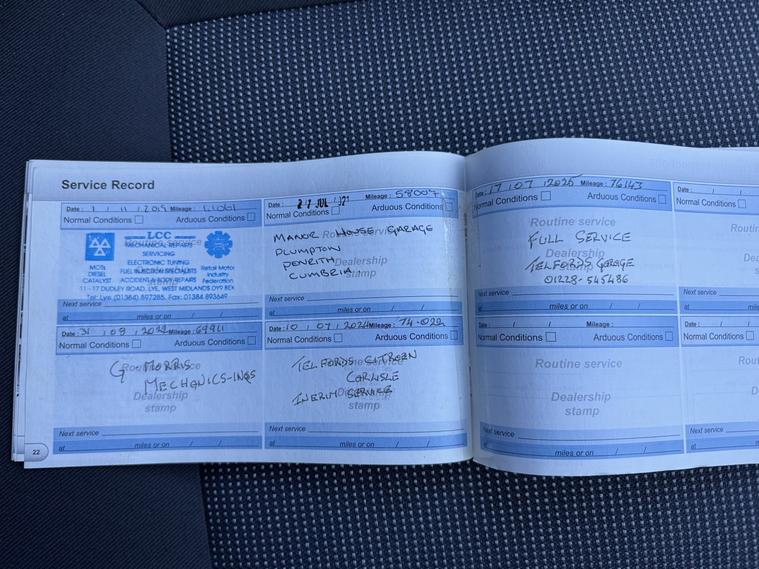 Service Record
Date: 1 / 11 / 2019 Mileage:
Normal Conditions Arduous Conditions
LCC
MECHANICAL REPAIRS
SERVICING
ELECTRONIC TUNING
FUEL INJECTION SPECIALISTS
ACCIDENT & BODY REPAIRS
MOTs
DIESEL
CATALYST
Retail Motor
Industry
Federation
11 - 17 DUDLEY ROAD, LYE, WEST MIDLANDS DY9 8EX
Tel: Lye (01384) 897285, Fax: 01384 893649
Next service
at miles or on / /
Date: 27 JUL 021 Mileage: 58007
Normal Conditions Arduous Conditions
MANOR HOUSE GARAGE
PLUMPTON
PENRITH
CUMBRIA
Dealership
stamp
Next service
at miles or on / /
Date: 17 / 07 / 2025 Mileage: 76143
Normal Conditions Arduous Conditions
Routine service
FULL SERVICE
TELFORDS GARAGE
01228-545486
Next service
at miles or on / /
Date: / /
Normal Conditions
Next service
at
Date: 31 / 08 / 2022 Mileage: 69911
Normal Conditions Arduous Conditions
G MORRIS
MECHANICS-INGS
Routine service
Dealership
stamp
Next service
at miles or on / /
Date: 10 / 07 / 2024 Mileage: 74-022
Normal Conditions Arduous Conditions
TELFORDS CITROEN
CARLISLE
INERIM SERVICE
Dealership
stamp
Next service
at miles or on / /
Date: / / Mileage:
Normal Conditions Arduous Conditions
Routine service
Dealership
stamp
Next service
at miles or on / /
Date: / /
Normal Conditions
Next service
at
22